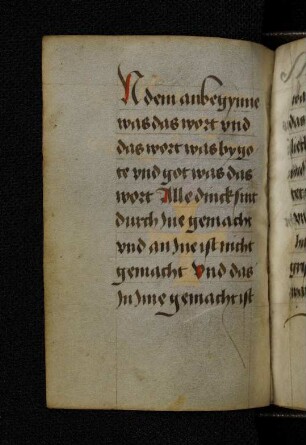 N dem anbegynne
was das wort vnd
das wort was by go
te vnd got was das
wort Alle dinck sint
durch Ine gemacht
vnd an Ine ist nicht
gemacht Vnd das
In Ime gemacht ist